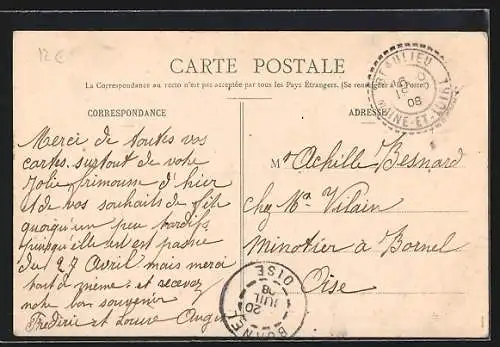 12 €
CARTE POSTALE
La Correspondance au recto n'est pas acceptée par tous les Pays Étrangers. (Se renseigner à la Poste.)
CORRESPONDANCE
ADRESSE
BEAULIEU
08
MAINE-ET-LOIRE
Merci de toutes vos
cartes surtout de votre
jolie frimousse d'hier
et de vos souhaits de fête
quoiqu'un peu tardifs
puisqu'elle est passée
du 27 Avril mais merci
tout de même et recevez
notre bon souvenir
Frédéric et Louise
Mr Achille Besnard
chez Mr Vilain
Minotier à Bornel
Oise
BORNEL
20
JUIL
08
OISE